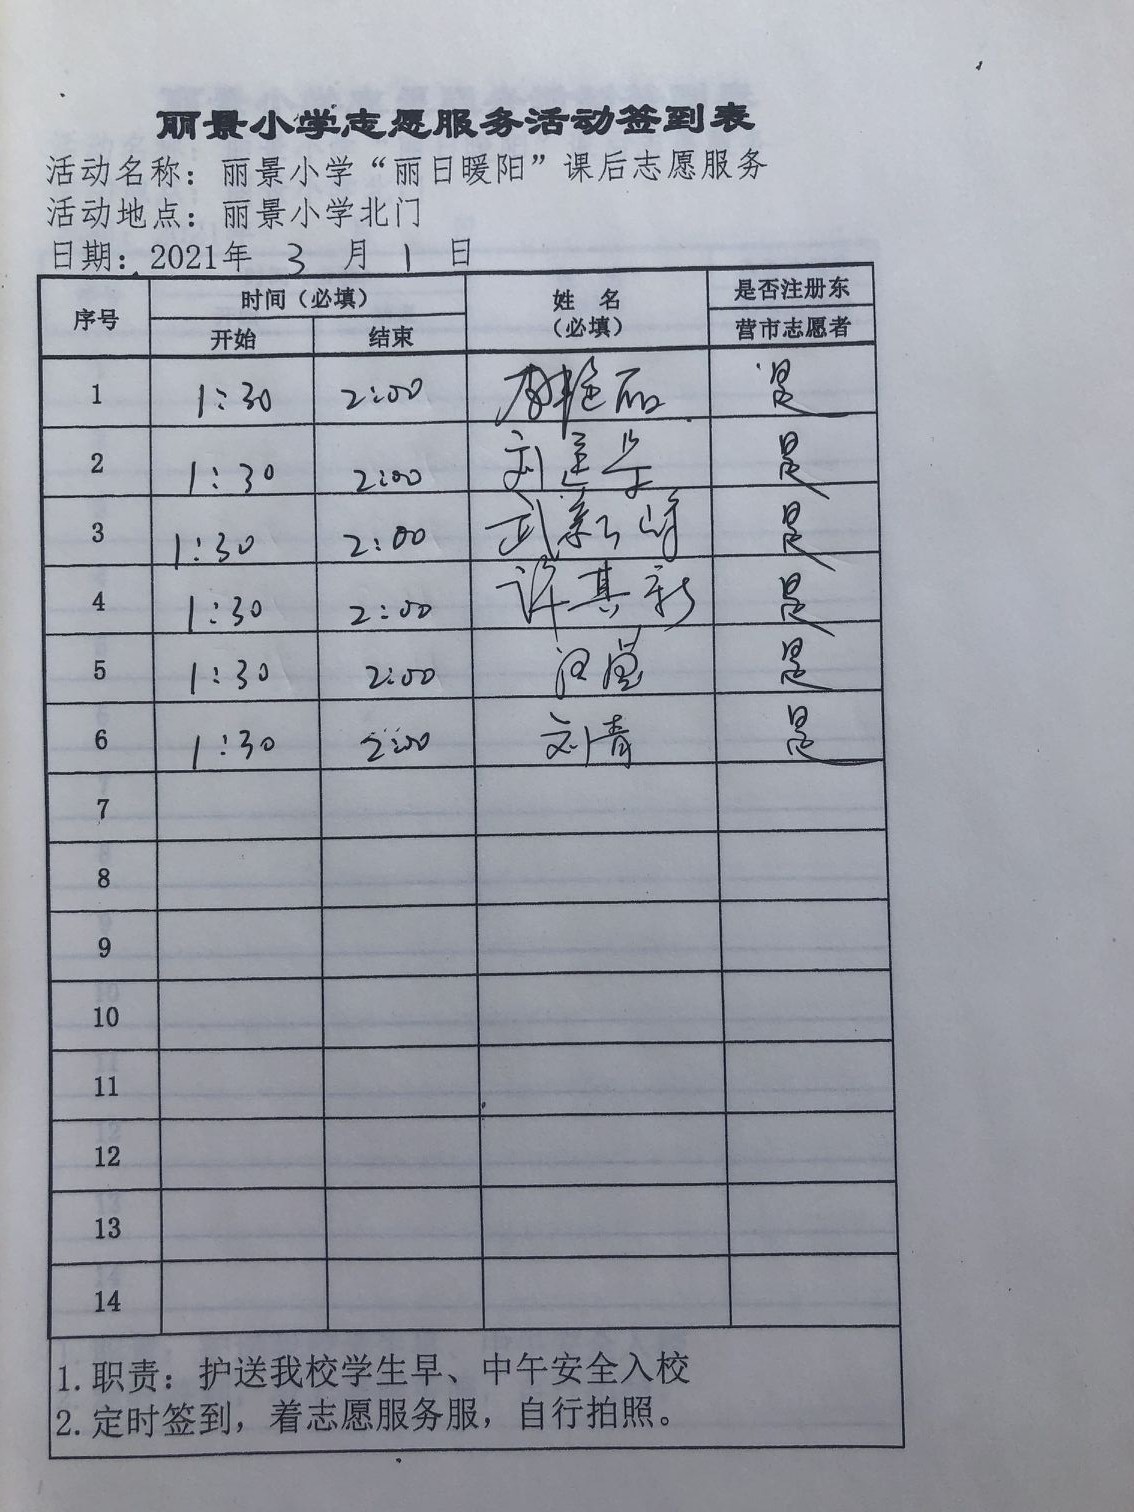 丽景小学志愿服务活动签到表
活动名称：丽景小学“丽日暖阳”课后志愿服务
活动地点：丽景小学北门
日期：2021年 3 月 1 日
序号 时间（必填） 姓 名（必填） 是否注册东营市志愿者
开始 结束
1 1:30 2:00 是
2 1:30 2:00 刘 是
3 1:30 2:00 武 是
4 1:30 2:00 许其新 是
5 1:30 2:00 是
6 1:30 2:00 刘青 是
7
8
9
10
11
12
13
14
1.职责：护送我校学生早、中午安全入校
2.定时签到，着志愿服务服，自行拍照。